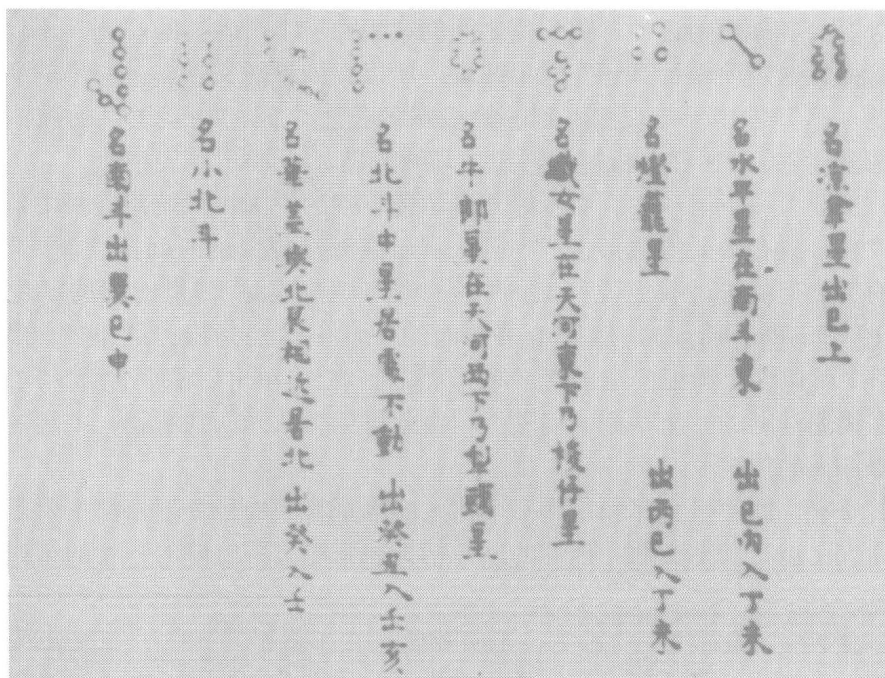 名涼㽎星出巳上
名水平星在南斗東 出巳丙入丁未
名燈籠星 出丙巳入丁未
名織女星在天河東下乃梭仔星
名牛郎星在天河西下乃
名北斗中星居 不動 出癸丑入壬亥
名華盖與北 出癸入壬
名小北斗
名南斗出巽巳中